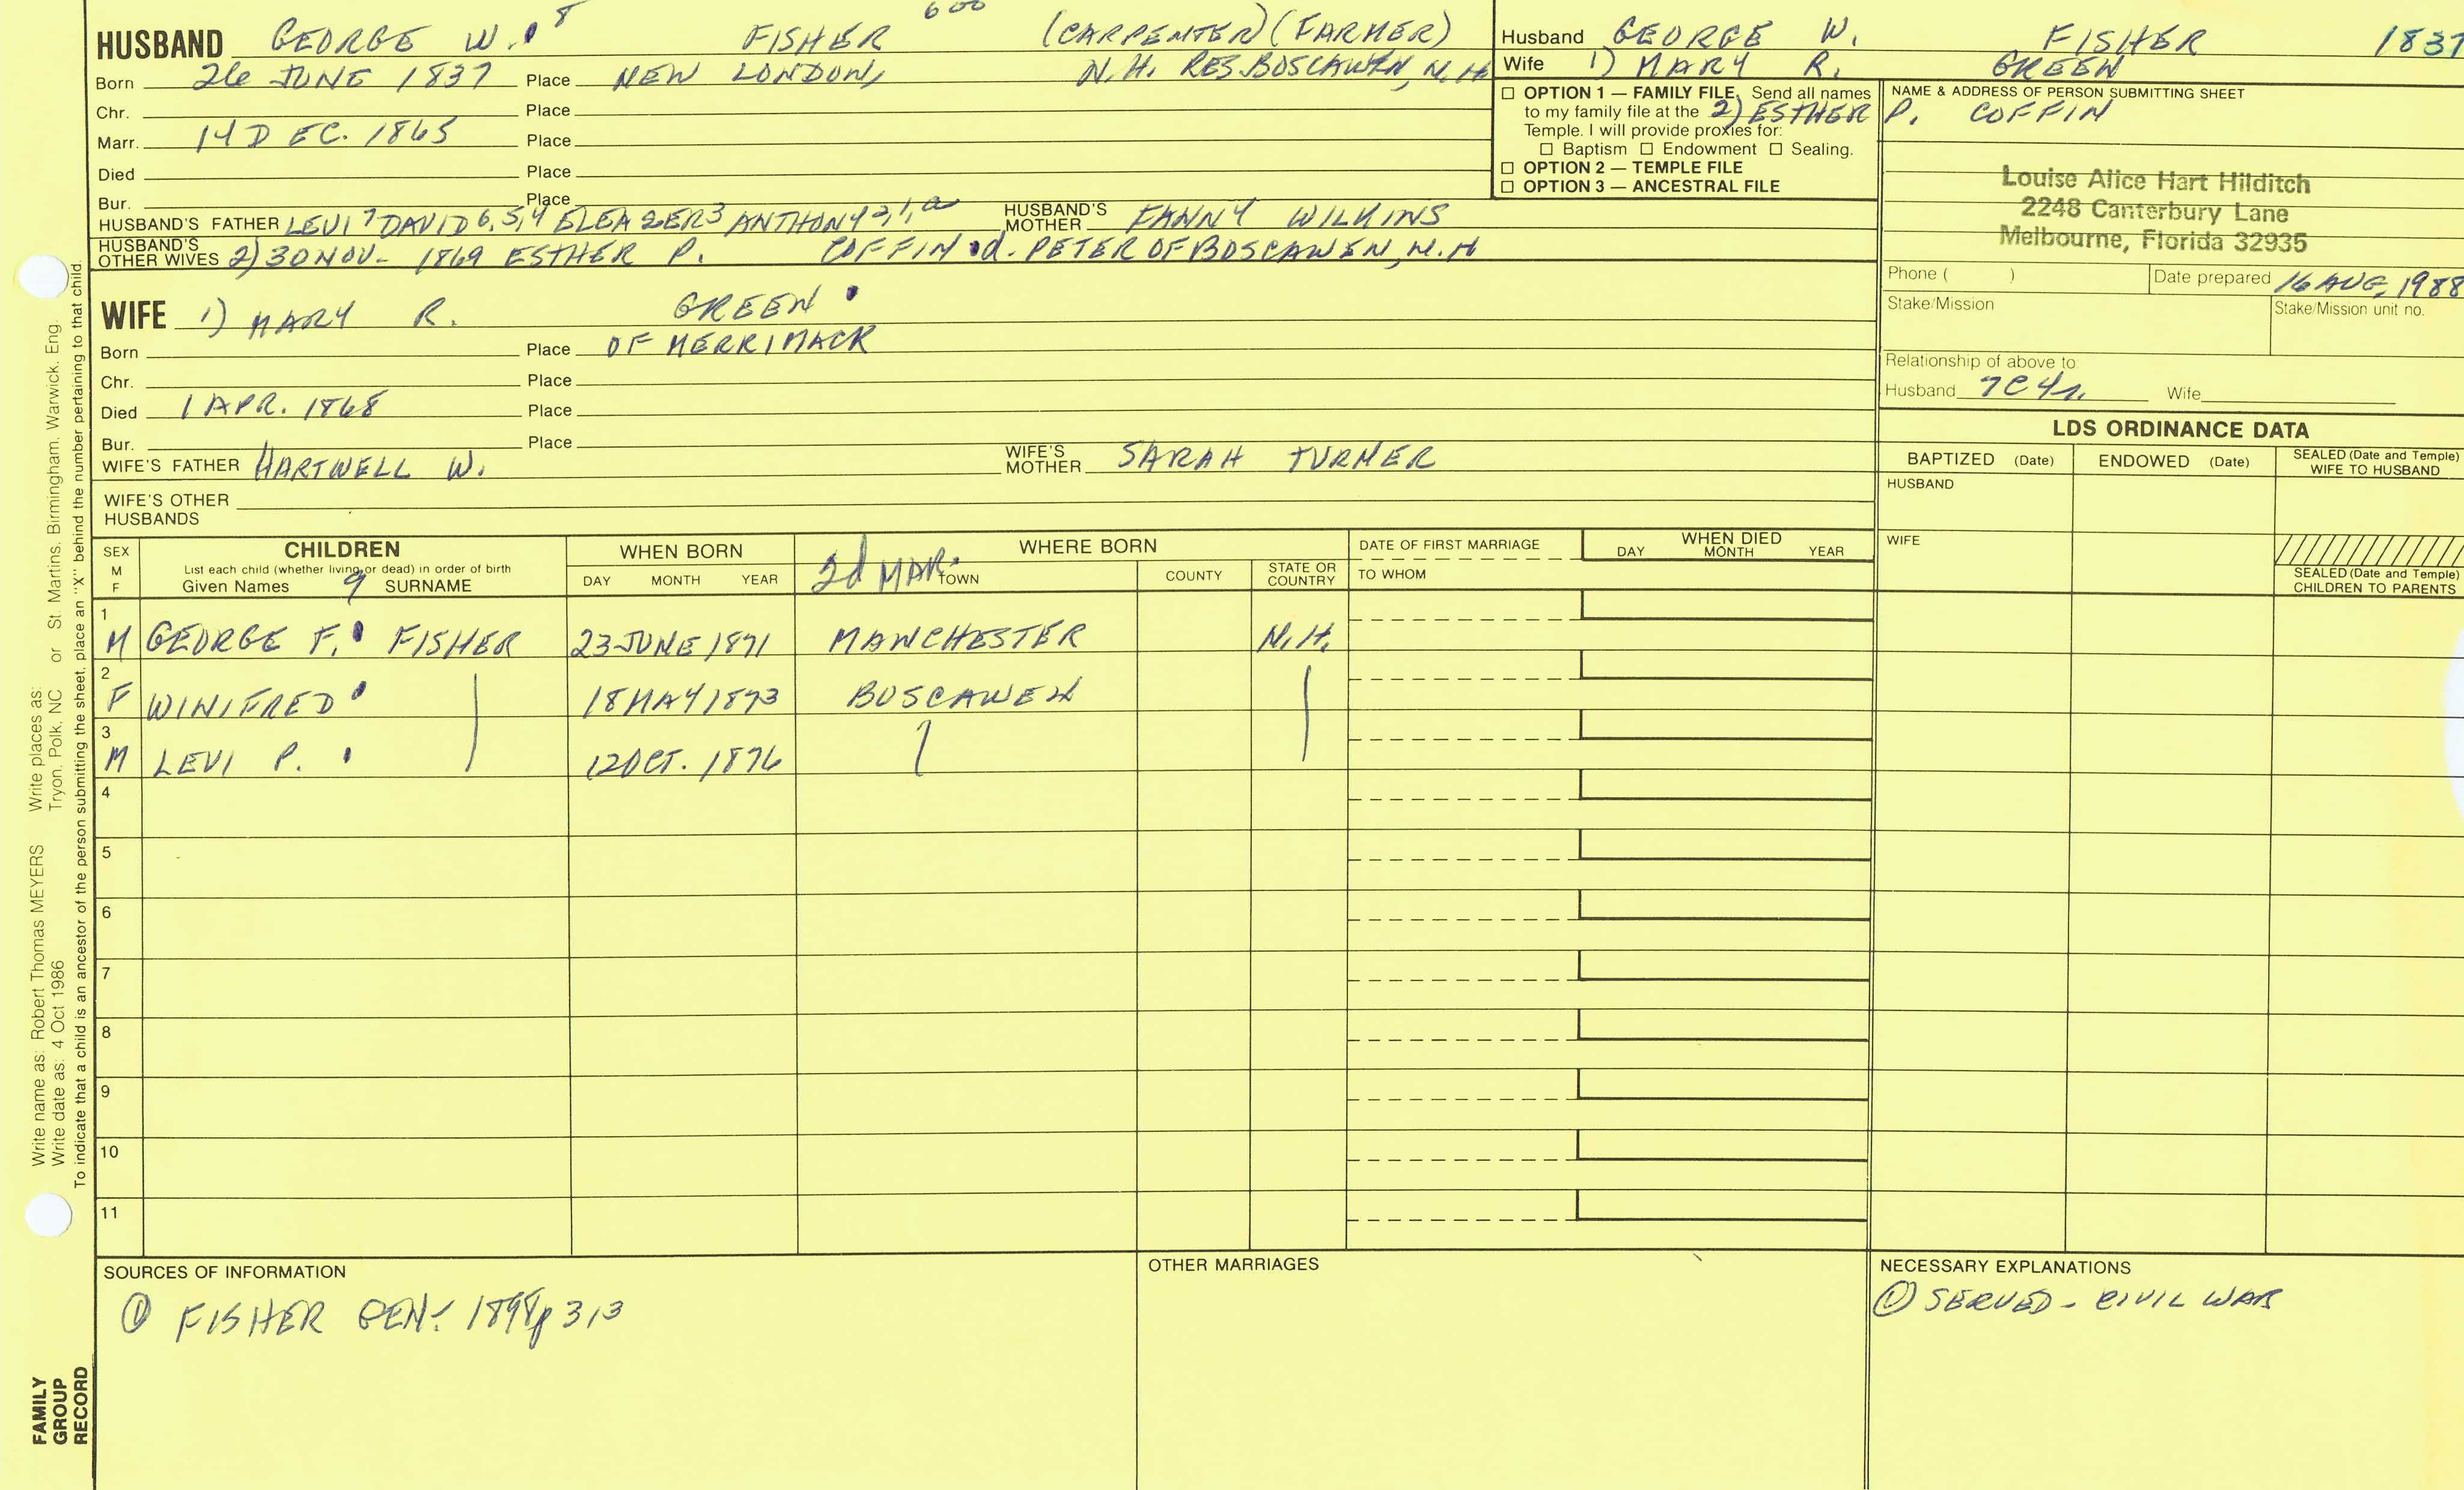 600
HUSBAND GEORGE W. 8 FISHER (CARPENTER) (FARMER)
Born 26 JUNE 1837 Place NEW LONDON, N.H. RES. BOSCAWEN, N.H.
Chr. Place
Marr. 14 DEC. 1865 Place
Died Place
Bur. Place
HUSBAND'S FATHER LEVI 7 DAVID 6,5,4 ELEAZER 3 ANTHONY 2,1,a HUSBAND'S MOTHER FANNY WILKINS
HUSBAND'S OTHER WIVES 2) 30 NOV- 1869 ESTHER P. COFFIN d. PETER OF BOSCAWEN, N.H
WIFE 1) MARY R. GREEN
Born Place OF MERRIMACK
Chr. Place
Died 1 APR. 1868 Place
Bur. Place
WIFE'S FATHER HARTWELL W. WIFE'S MOTHER SARAH TURNER
WIFE'S OTHER HUSBANDS
Husband GEORGE W. FISHER 1837
Wife 1) MARY R. GREEN
2) ESTHER P. COFFIN
☐ OPTION 1 — FAMILY FILE. Send all names
to my family file at the
Temple. I will provide proxies for:
☐ Baptism ☐ Endowment ☐ Sealing.
☐ OPTION 2 — TEMPLE FILE
☐ OPTION 3 — ANCESTRAL FILE
NAME & ADDRESS OF PERSON SUBMITTING SHEET
Louise Alice Hart Hilditch
2248 Canterbury Lane
Melbourne, Florida 32935
Phone ( ) Date prepared 16 AUG, 1988
Stake/Mission Stake/Mission unit no.
Relationship of above to:
Husband 7C4r. Wife
LDS ORDINANCE DATA
BAPTIZED (Date) ENDOWED (Date) SEALED (Date and Temple) WIFE TO HUSBAND
HUSBAND
WIFE
SEALED (Date and Temple) CHILDREN TO PARENTS
SEX M F
CHILDREN
List each child (whether living or dead) in order of birth
Given Names 9 SURNAME
WHEN BORN
DAY MONTH YEAR
WHERE BORN
2d MAR. TOWN COUNTY STATE OR COUNTRY
DATE OF FIRST MARRIAGE
TO WHOM
WHEN DIED
DAY MONTH YEAR
1 M GEORGE F. FISHER 23 JUNE 1871 MANCHESTER N.H.
2 F WINIFRED 18 MAY 1873 BOSCAWEN
3 M LEVI P. 12 OCT. 1876
4
5
6
7
8
9
10
11
SOURCES OF INFORMATION
① FISHER GEN. 1898 p 313
OTHER MARRIAGES
NECESSARY EXPLANATIONS
① SERVED - CIVIL WAR
Write name as: Robert Thomas MEYERS Write places as:
Write date as: 4 Oct 1986 Tryon, Polk, NC or St. Martins, Birmingham, Warwick, Eng.
To indicate that a child is an ancestor of the person submitting the sheet, place an "X" behind the number pertaining to that child.
FAMILY
GROUP
RECORD